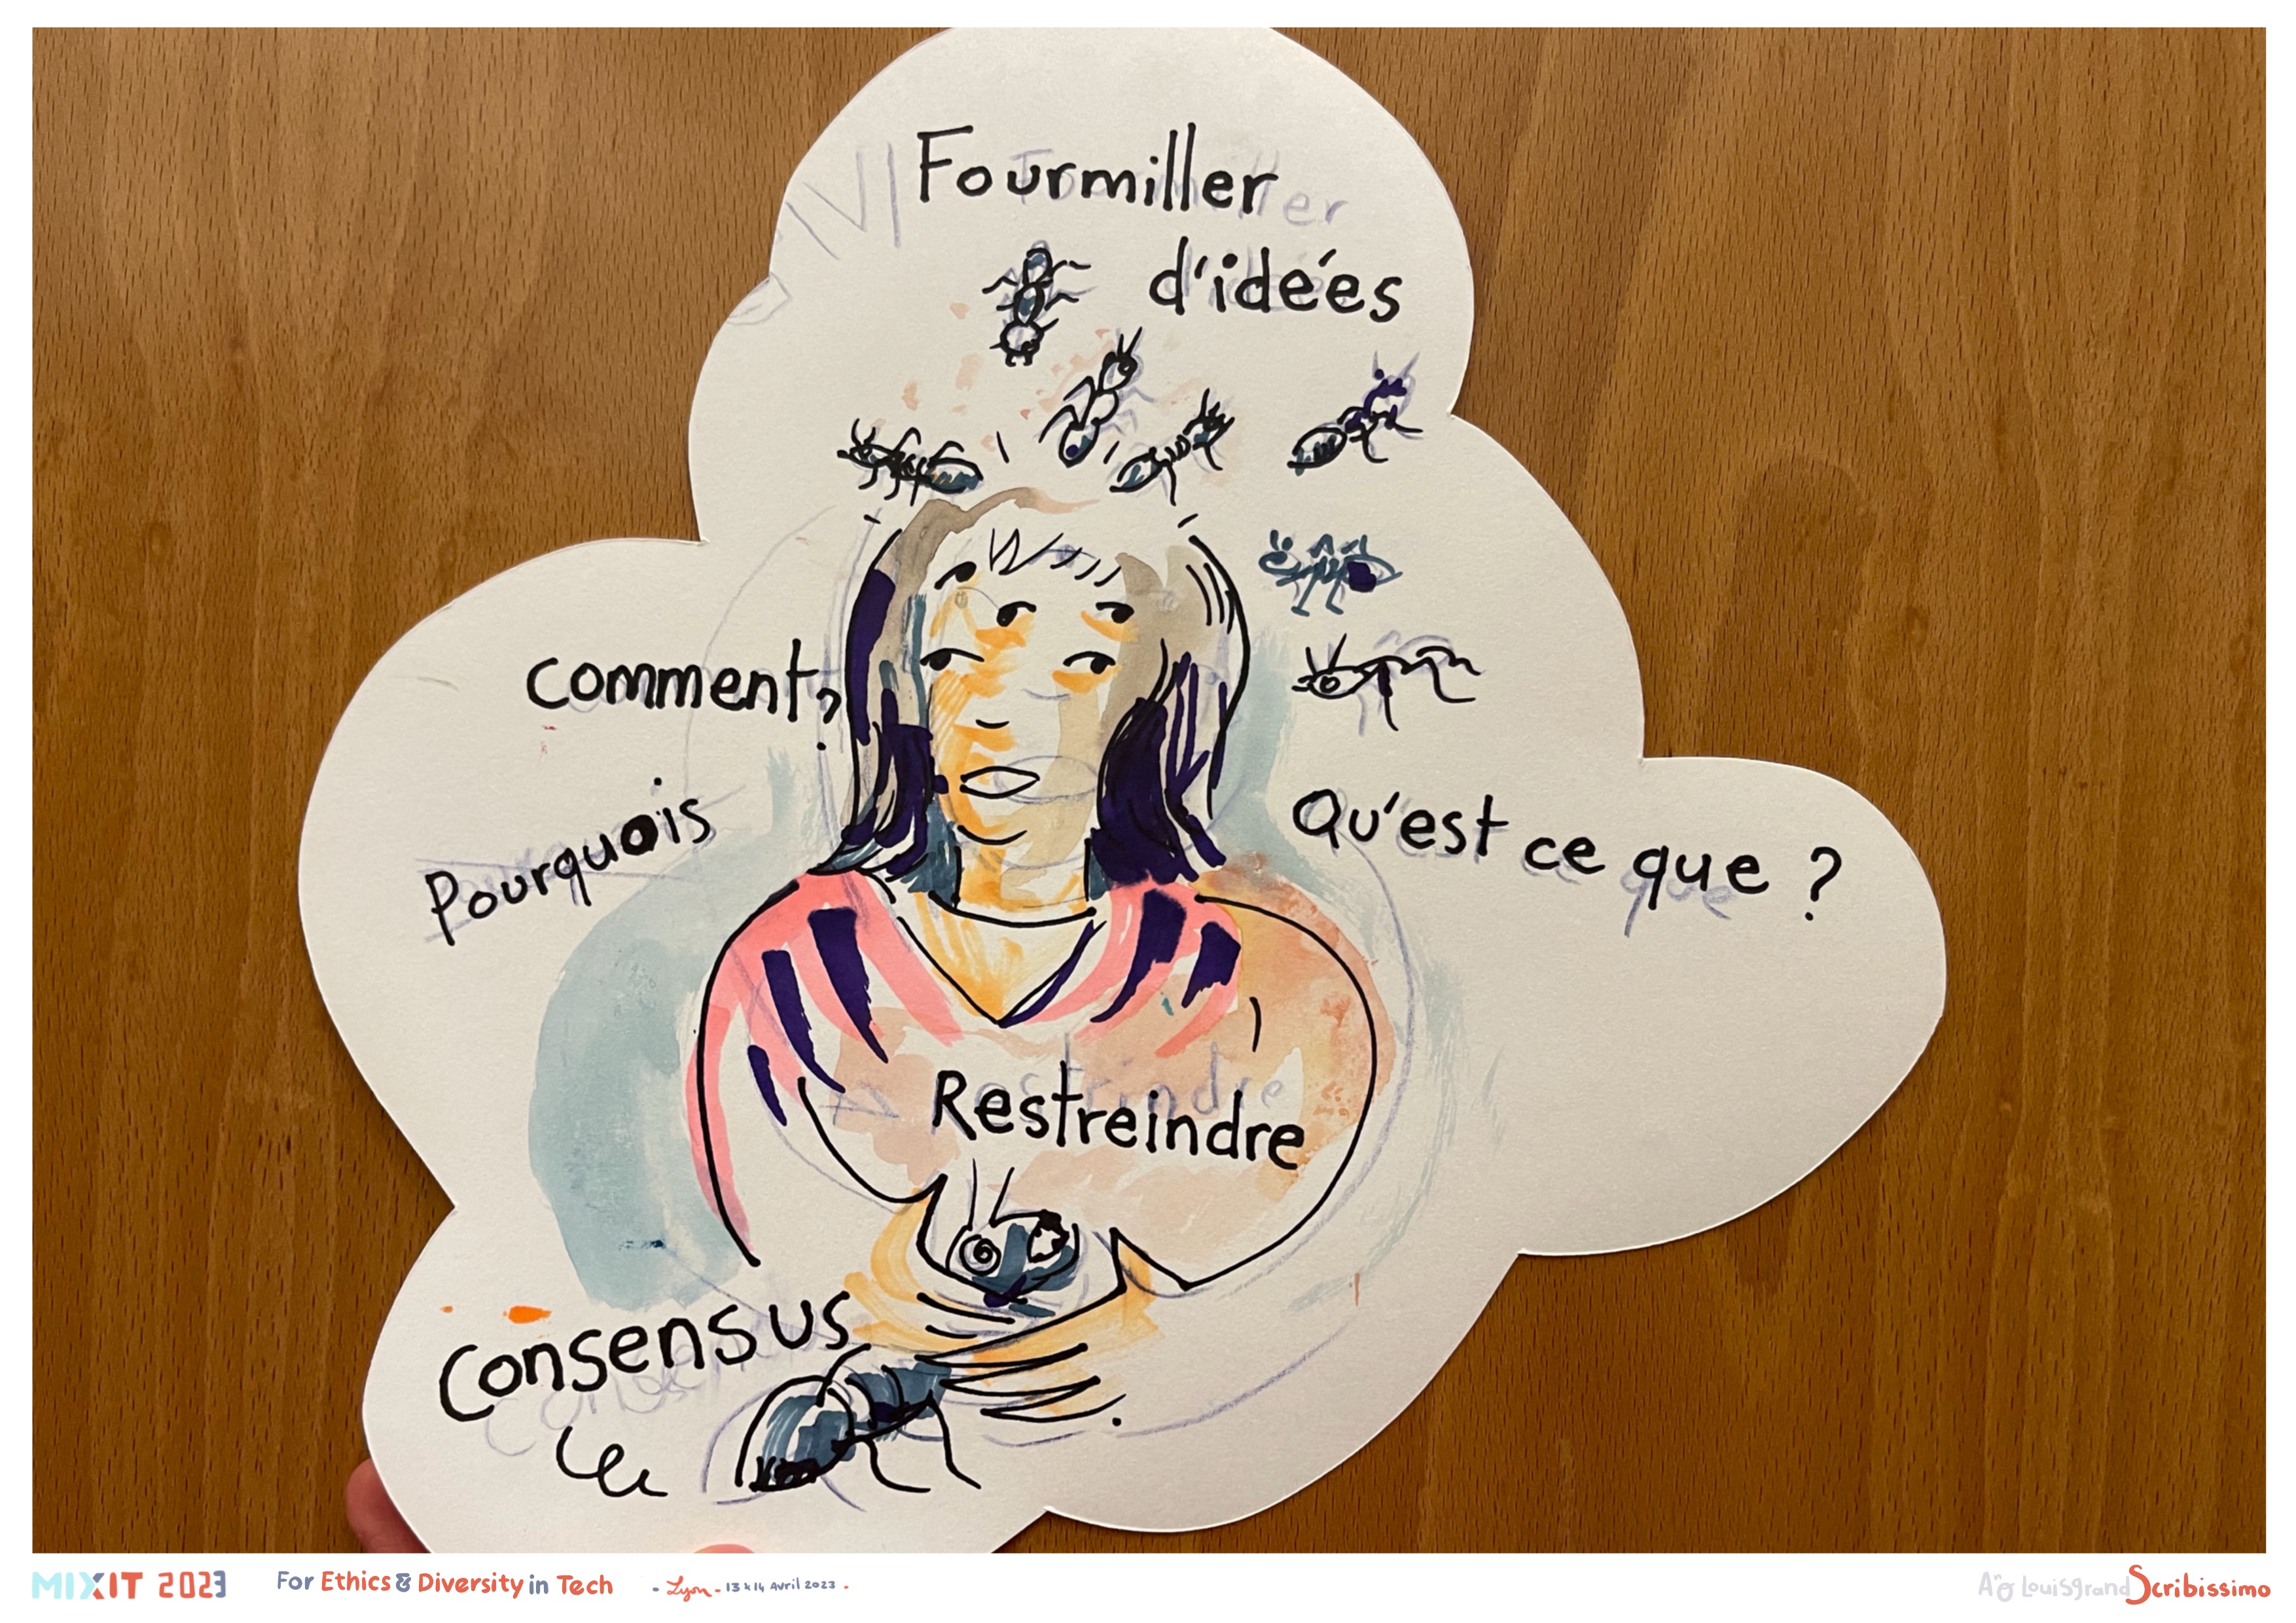 Fourmiller
d'idées
comment?
Pourquois
Qu'est ce que ?
Restreindre
Consensus
MIXIT 2023 For Ethics & Diversity in Tech - Lyon - 13 & 14 Avril 2023 -
Louisgrand Scribissimo